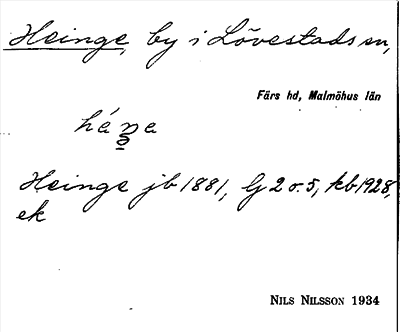 Heinge, by i Lövestads sn,
Färs hd, Malmöhus län
Heinge jb 1881, G 2 o. 5, kb 1928,
ek
NILS NILSSON 1934